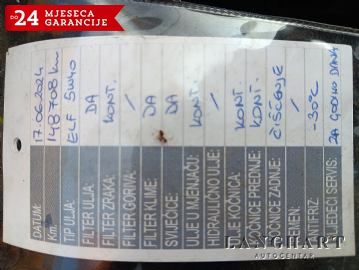 DO 24 MJESECA GARANCIJE
DATUM: 17.06.2024
Km: 148708 km
TIP ULJA: ELF 5W40
FILTER ULJA: DA
FILTER ZRAKA: KONT.
FILTER GORIVA: /
FILTER KLIME: DA
SVJEĆICE: DA
ULJE U MJENJAČU: KONT.
HIDRAULIČNO ULJE: /
ULJE KOČNICA: KONT.
KOČNICE PREDNJE: KONT.
KOČNICE ZADNJE: ČIŠĆENJE
REMEN: /
ANTIFRIZ -30°C
SLJEDEĆI SERVIS: ZA GODINU DANA
LANGHART
AUTOCENTAR